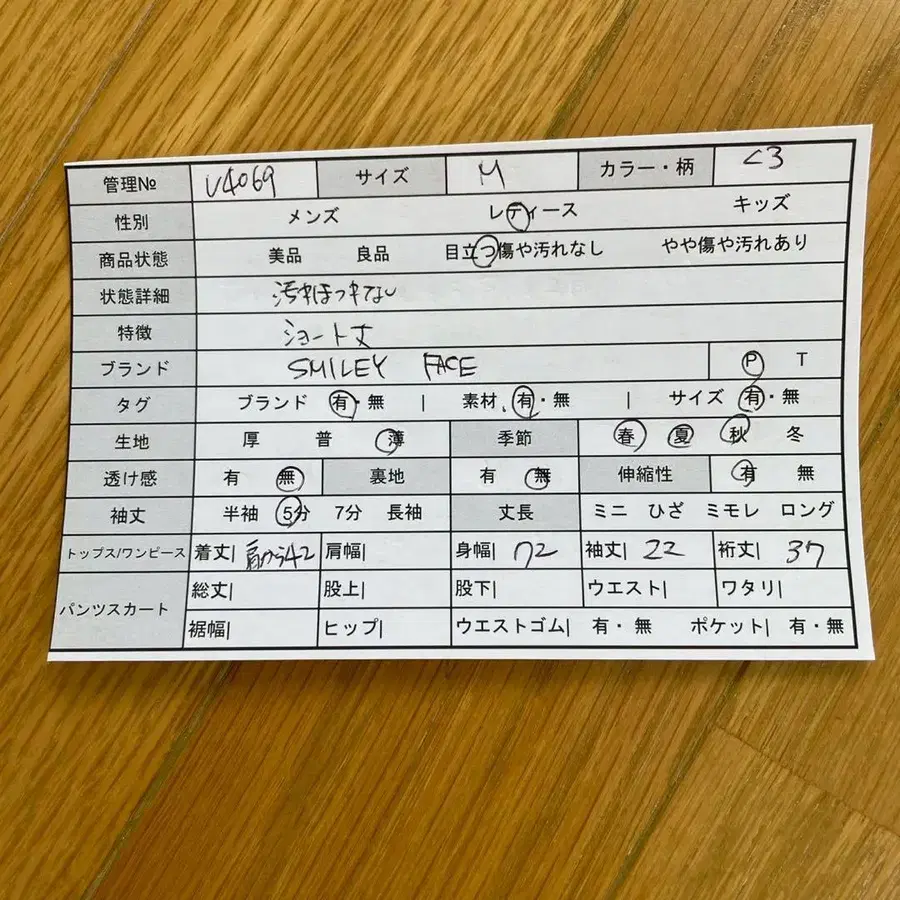 管理№ V4069 サイズ M カラー・柄 <3
性別 メンズ レディース キッズ
商品状態 美品 良品 目立つ傷や汚れなし やや傷や汚れあり
状態詳細 汚れほつれない
特徴 ショート丈
ブランド SMILEY FACE P T
タグ ブランド 有・無 | 素材 有・無 | サイズ 有・無
生地 厚 普 薄 季節 春 夏 秋 冬
透け感 有 無 裏地 有 無 伸縮性 有 無
袖丈 半袖 5分 7分 長袖 丈長 ミニ ひざ ミモレ ロング
トップス/ワンピース 着丈| 肩から42 肩幅| 身幅| 72 袖丈| 22 裄丈| 37
パンツスカート 総丈| 股上| 股下| ウエスト| ワタリ|
裾幅| ヒップ| ウエストゴム| 有・無 ポケット| 有・無